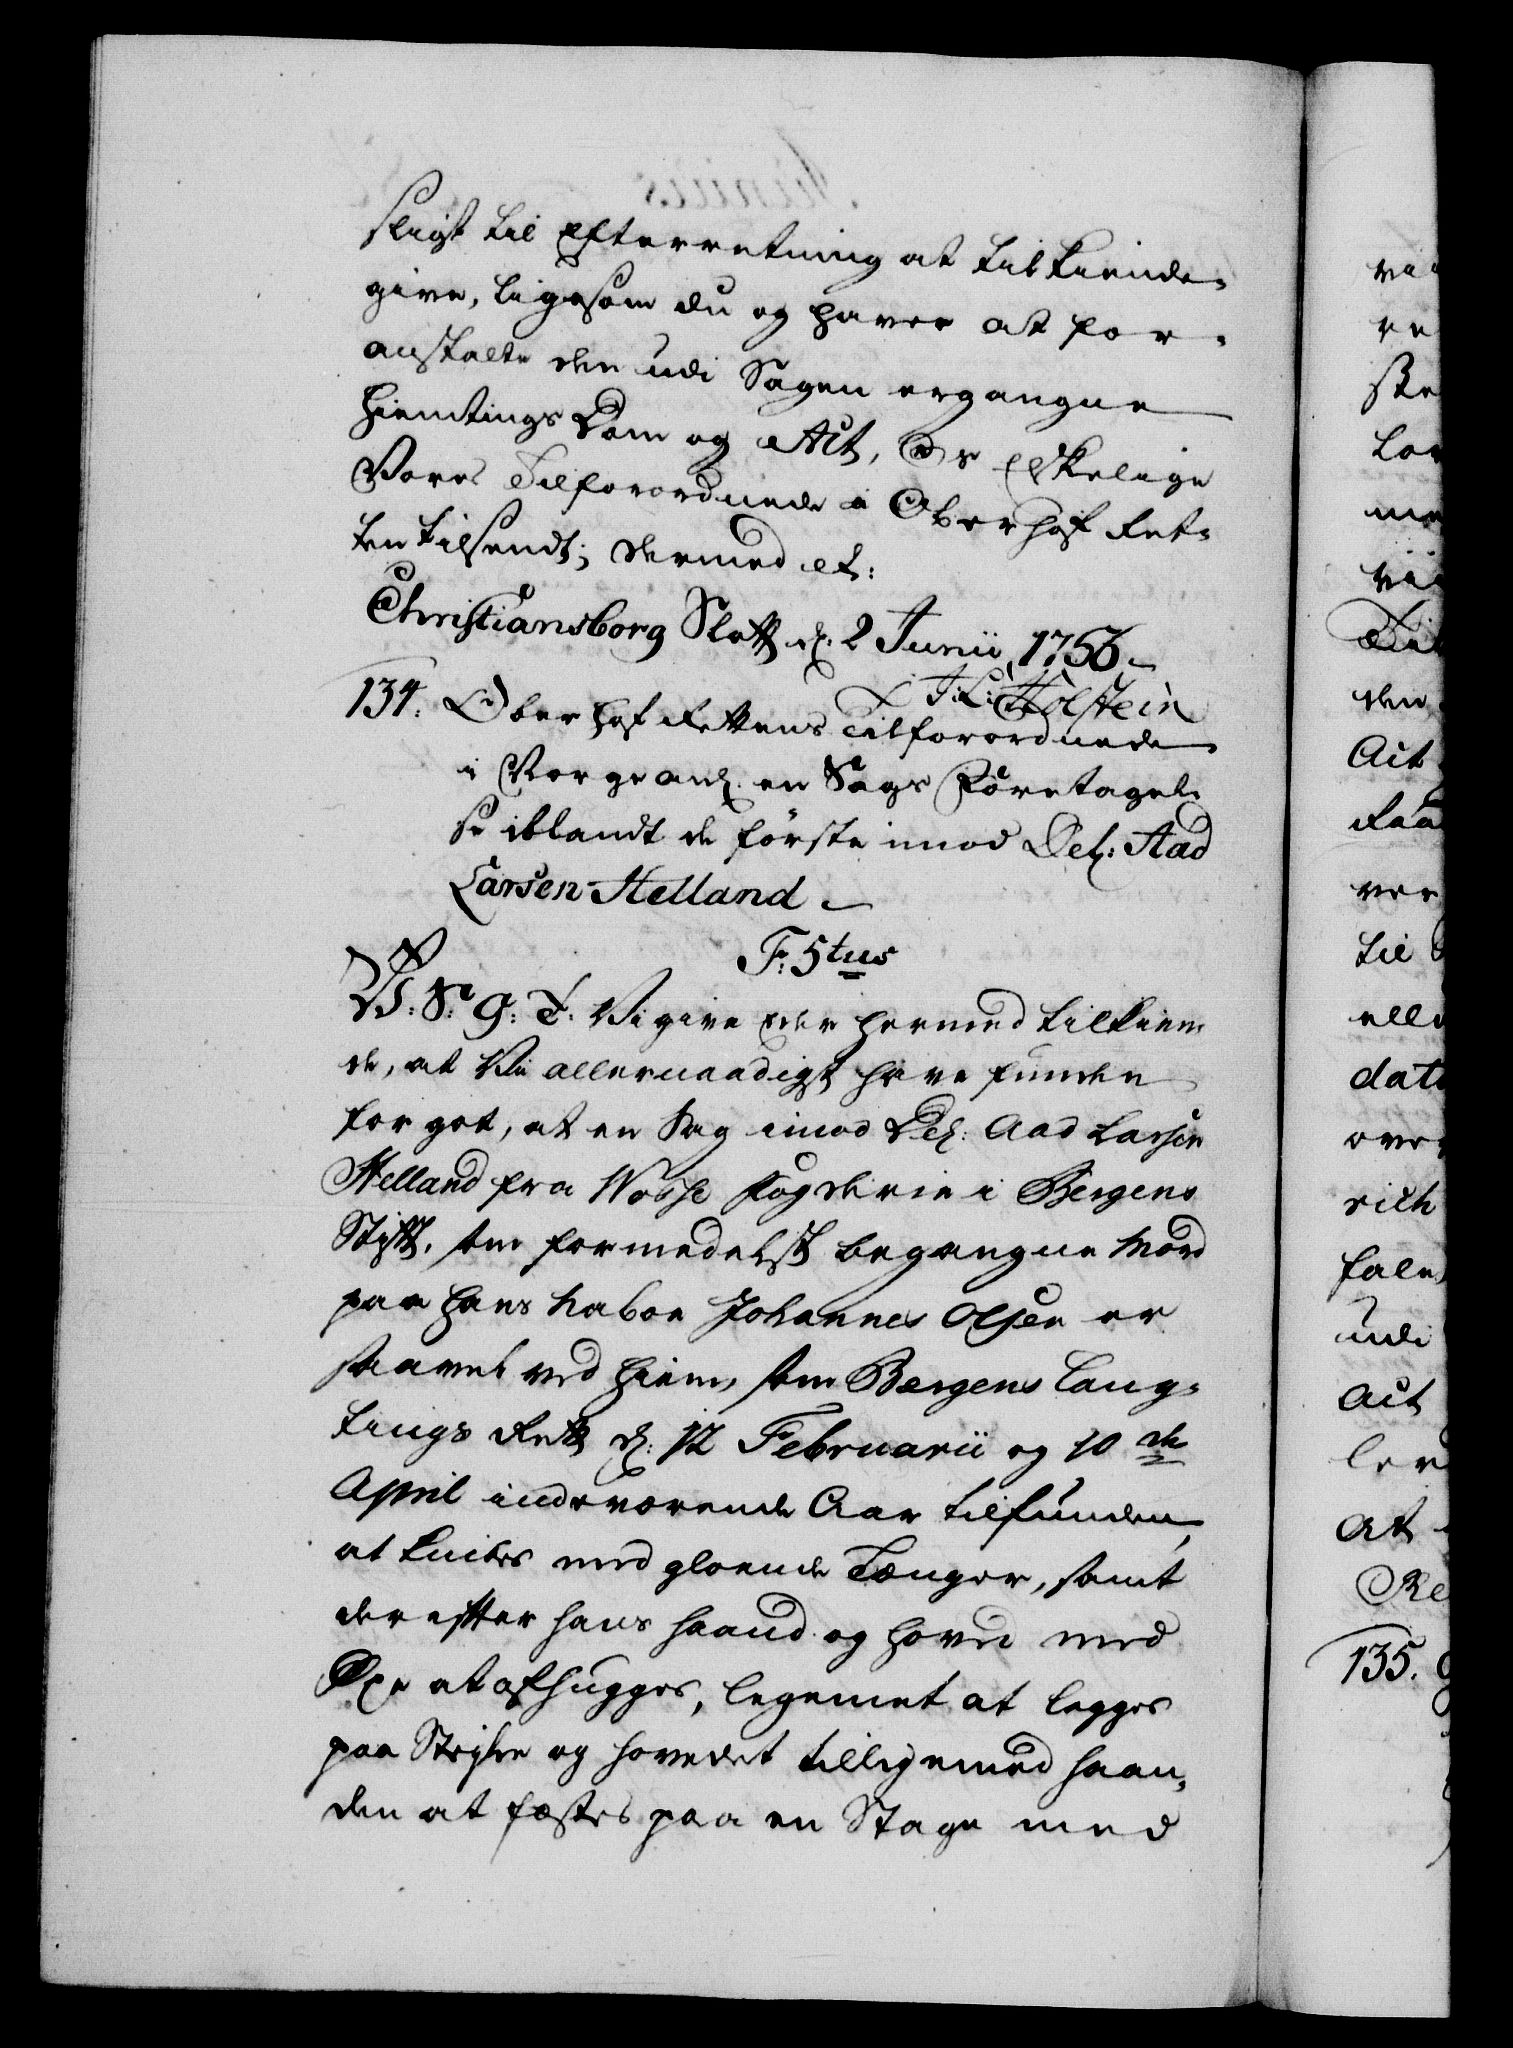 sligt til Efterretning at tilkiende-
give, ligesom du og haver at for-
anstalte den udi Sagen ergangne
Hiemtings Dom og Act, Os Elskelige
Vores Tilforordnede i Oberhof Ret-
ten tilsendt; dermed et:
Christiansborg Slott d: 2 Junii 1756
J: L: Holstein
134. Oberhof Rettens Tilforordnede
i Norge ang: en Sags Foretagel-
se iblandt de første imod Del: Aad
Larsen Helland
F: 5tus
V: S: G: T: Vi give Eder hermed tilkien-
de, at Vi allernaadigst have funden
for got, at en Sag imod Del: Aad Larsen
Helland fra Wosse fogderie i Bergens
Stift, som formedelst begangne Mord
paa hans Naboe Johannes Olsen er
saavel ved Hiem, som Bergens Laug-
tings Rett d: 12 Februarii og 10 de
April indeværende Aar tilfunden,
at knibes med gloende Tænger, samt
derefter hans haand og hoved med
Øxe at afhugges, legemet at legges
paa Steyle og hovedet tilligemed haan-
den at fæstes paa en Stage med
135.